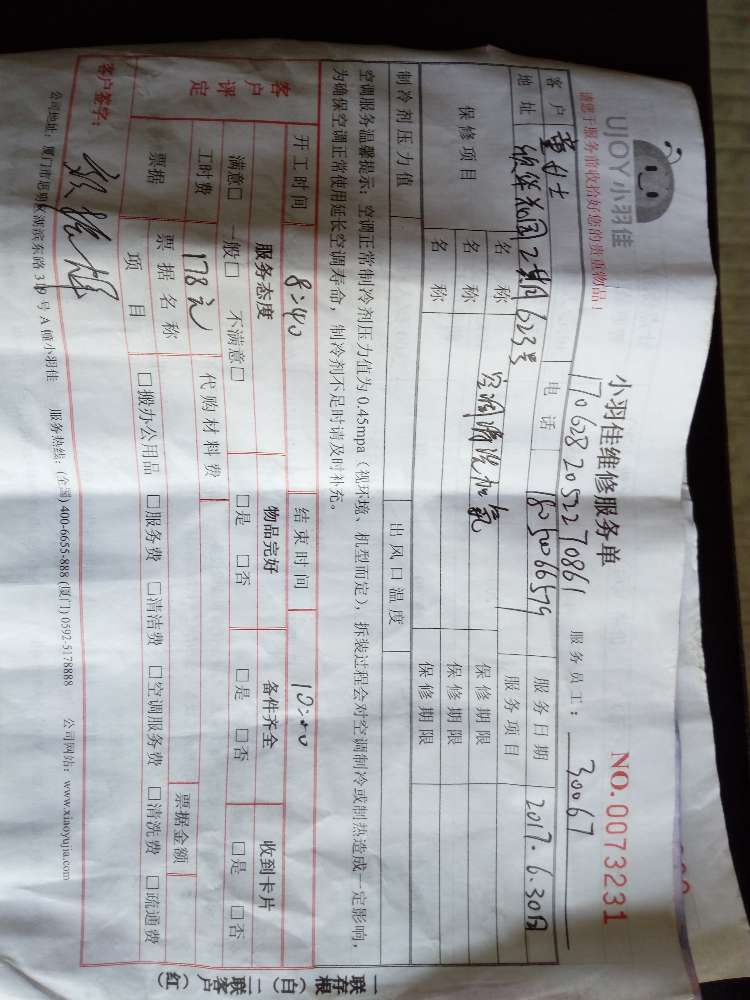 UJOY小羽佳
请您于服务前收拾好您的贵重物品！
小羽佳维修服务单
NO.0073231
1706282052270861
服务员工：30067
客户 董女士 电话 服务日期 2017.6.30日
地址 2期623号 服务项目
保修项目 名称 空调清洗加氧 保修期限
名称 保修期限
名称 保修期限
制冷剂压力值 出风口温度
空调服务温馨提示：空调正常制冷剂压力值为 0.45mpa（视环境、机型而定），拆装过程会对空调制冷或制热造成一定影响，
为确保空调正常使用延长空调寿命，制冷剂不足时请及时补充。
开工时间 8:40 结束时间 10:00
客户评定 服务态度 物品完好 备件齐全 收到卡片
满意□ 一般□ 不满意□ □是 □否 □是 □否 □是 □否
工时费 178元 代购材料费
票据 票据名称 票据金额
项目 □搬办公用品 □服务费 □清洁费 □空调服务费 □清洗费 □疏通费
客户签字：
公司地址：厦门市思明区湖滨东路 319 号 A 幢小羽佳 服务热线：(全国) 400-6655-888 (厦门) 0592-5178888 公司网站：www.xiaoyujia.com
一联存根（白）二联客户（红）